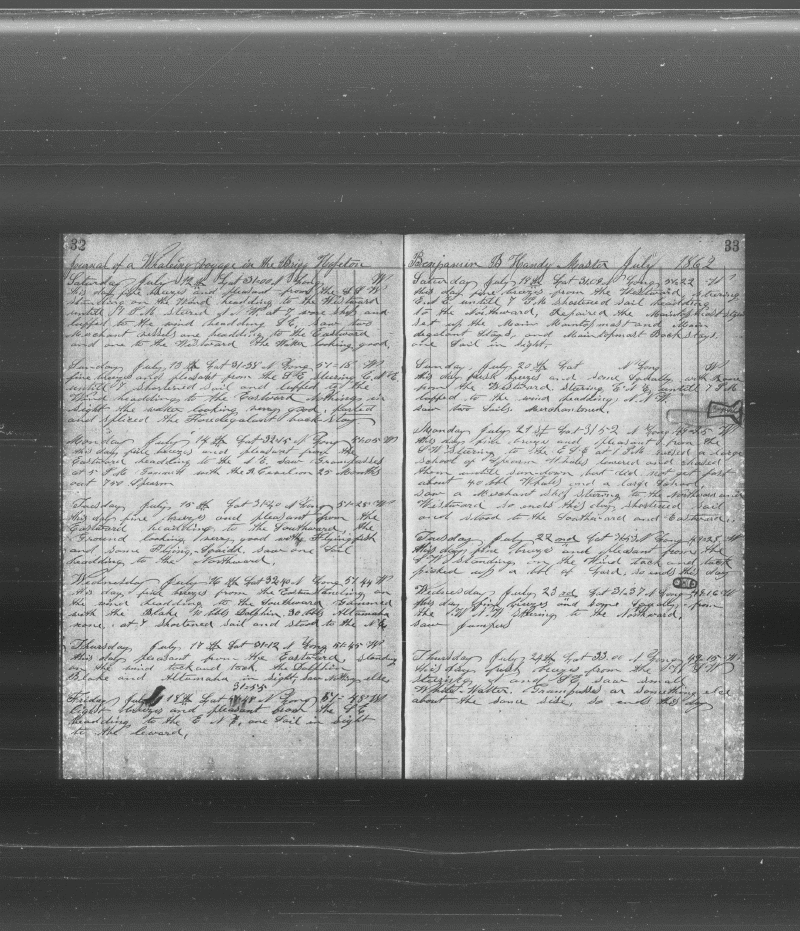 32
Journal of a Whaleing voyage in the Brig Hopeton
Saturday July 12th Lat 31.00 N Long W
this day fine breeze and pleasant from the S S W
standing on the Wind heading to the Westward
untill P.M. stered N W at 7 sone ship and
luffed to the wind heading S E, saw two
Merchant vessels one heading to the Eastward
and one to the Westward the Water looking good,
Sunday July 13th Lat 31-38 N Long 51-15 W
fine breeze and pleasant from the S E steering E N E,
untill 7 shortened sail and luffed to the
Wind heading to the Eastward Nothing in
sight the water looking very good,
and spliced the Foretopgalant back stay
Monday July 14th Lat 32.15 N Long W
this day fine breeze and pleasant from the
Eastward heading to the N E saw Grampusses
at 5 with the 25 Months
out 700 Sperm
Tuesday July 15th Lat 31.40 N Long 51-25 W
this day fine breeze and pleasant from the
Eastward heading to the Southward, the
Ground looking very good with Flying fish
and some Flying Squid saw one Sail
heading to the Northward,
Wednesday July 16th Lat 32.40 N Long 51.44 W
this day fine breeze from the Eastward on
the wind heading to the Southward Gammed
with the Blake Dolphin 30 bbls Altamaha
none, at 7 shortened sail and stood to the N E
Thursday July 17th Lat 31.12 N Long 51.45 W
this day pleasant from the Eastward, standing
on the wind tack and tack the Dolphin
Blake and Altamaha in sight saw nothing else
31-55
Friday July 18th Lat N Long W
light breeze and pleasant from the S E
heading to the E N E, one Sail in sight
to the leward,
33
Benjamin B Handy Master July 1862
Saturday July 19th Lat N Long W
this day fine breeze from the Westward, steering
E N E untill 7 P.M. shortened sail heading
to the Northward, Repaired the Maintopmast stays
set up the Main Maintopmast and Main
topgalant Stays, and Maintopmast Backstays
one Sail in sight.
Sunday July 20th Lat N Long W
this day fresh breeze and some Squally with Rain
from the Westward, steering E N E, untill 7 P.M.
luffed to the wind heading N N W
saw two Sails Merchantmen.
Monday July 21st Lat 31-52 N Long W
this day fine breeze and pleasant from the
S W stering to the E S E at 1 P.M. raised a large
school of Sperm Whales lowered and chased
them untill sundown but did not get fast
about 40 bbl Whales and a large School,
saw a Merchant ship stering to the Northward and
Westward so ends this day, shortened sail
and stood to the Southward and Eastward,
Tuesday July 22nd Lat N Long W
this day fine breeze and pleasant from the
S W standing on the Wind tack and tack
picked up a bbl of Lard, so ends this day
Wednesday July 23rd Lat 31.37 N Long 48.16 W
this day fine breeze and some Squally from
the W S W stering to the Northward,
saw jumpers
Thursday July 24th Lat 33.00 N Long 49-15 W
this day fresh breeze from the S S W
stering and S E, saw small
White Water Grampusses or something else
about the same size, so ends this day